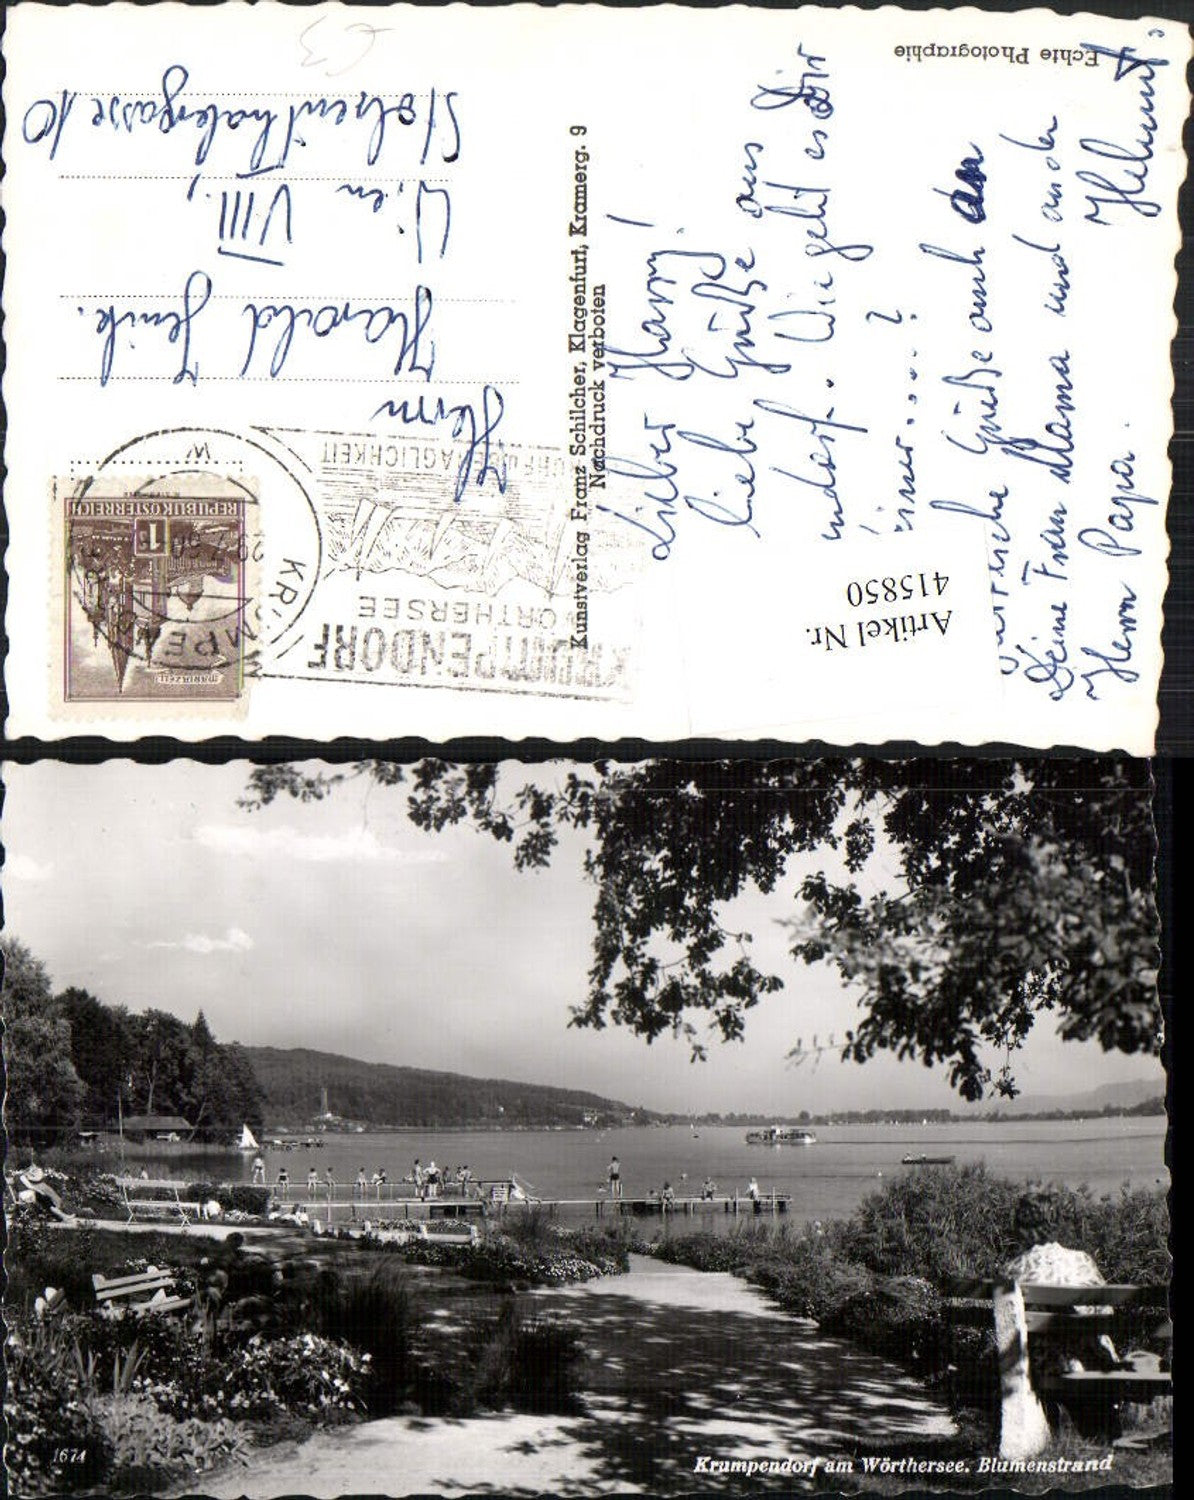 Echte Photographie
Kunstverlag Franz Schilcher, Klagenfurt, Kramerg. 9
Nachdruck verboten
Lieber Harry!
liebe Grüße aus
Wie geht es Dir
immer....?
Grüße auch an
Deine Frau Mama und an den
Herrn Papa.
Helmut.
Artikel Nr.
415850
KRUMPENDORF
WÖRTHERSEE
KRUMPENDORF
REPUBLIK ÖSTERREICH
1 S
MARIAZELL
Herrn
Harald Jenik.
Wien VIII.,
Stolzenthalergasse 10
1674
Krumpendorf am Wörthersee. Blumenstrand